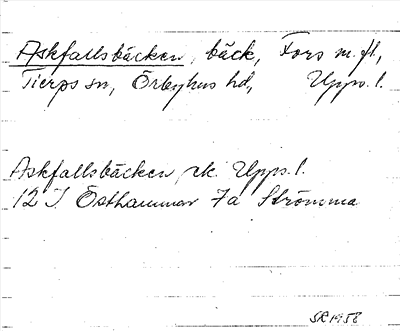 Askfallsbäcken, bäck, Fors m. fl.,
Tierps sn, Örbyhus hd, Upps. l.
Askfallsbäcken, rk. Upps. l.
12 I Östhammar 7a Strömma
SR 1958